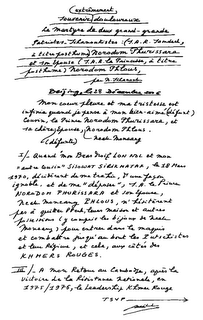 (extrêmement)
Souvenir douloureux
Le Martyre de deux grands-grands
Patriotes Sihanoukistes (S.A.R. Samdech,
à titre posthume) Norodom Phurissara
et son épouse (S.A.R. la Princesse, à titre
posthume) Norodom Phlous,
par N. Sihanouk
Beijing, le 28
I/. Mon cœur pleure et ma tristesse est
infinie quand je pense à mon bien-aimé (défunt)
cousin, le Prince Norodom Phurissara, et
sa chère épouse, Norodom Phlous.
(défunte) Neak Moneang
II/. Quand ma Beau-Père LON NOL et mon
cousin SISOWATH SIRIKMATAK, le 18 mars
1970, décidèrent de me trahir, d'une façon
ignoble, et de me "déposer", S.A.R. le Prince
NORODOM PHURISSARA et son épouse,
Neak Moneang PHLOUS, n'hésitèrent
pas à quitter leur maison et autres
possessions (y compris les bijoux de Neak
Moneang) pour entrer dans le maquis
et combattre jusqu'au bout les Putschistes
et leur Régime, et cela, aux côtés des
KHMERS ROUGES.
III/. A mon Retour au Cambodge, après la
Victoire de la Résistance nationale, en
1975/1976, le Leadership Khmer Rouge